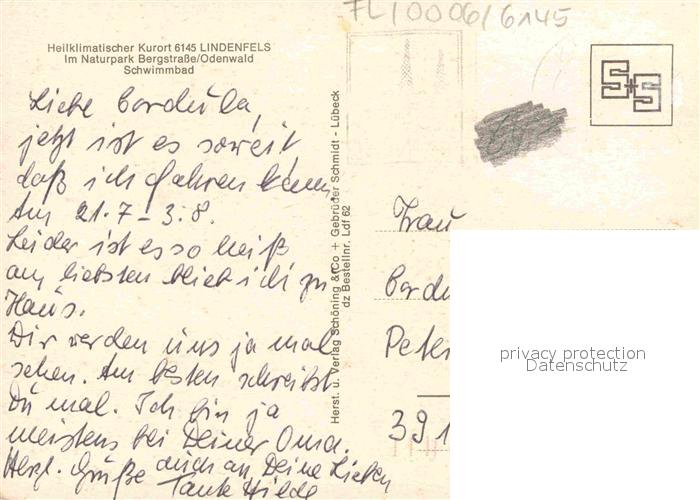 FL/0006/6145
Heilklimatischer Kurort 6145 LINDENFELS
Im Naturpark Bergstraße/Odenwald
Schwimmbad
Liebe Cordula,
jetzt ist es soweit,
daß ich fahren kann,
Am 21.7 - 3.8.
Leider ist es so heiß
am liebsten blieb ich zu
Haus.
Wir werden uns ja mal
sehen. Am besten schreibst
Du mal. Ich bin ja
meistens bei Deiner Oma.
Herzl. Grüße auch an Deine Lieben
Tante Hilde
Herst. u. Verlag Schöning & Co + Gebrüder Schmidt - Lübeck
dz Bestellnr. Ldf 62
S+S
Frau
Cordu
Peter
391
privacy protection
Datenschutz